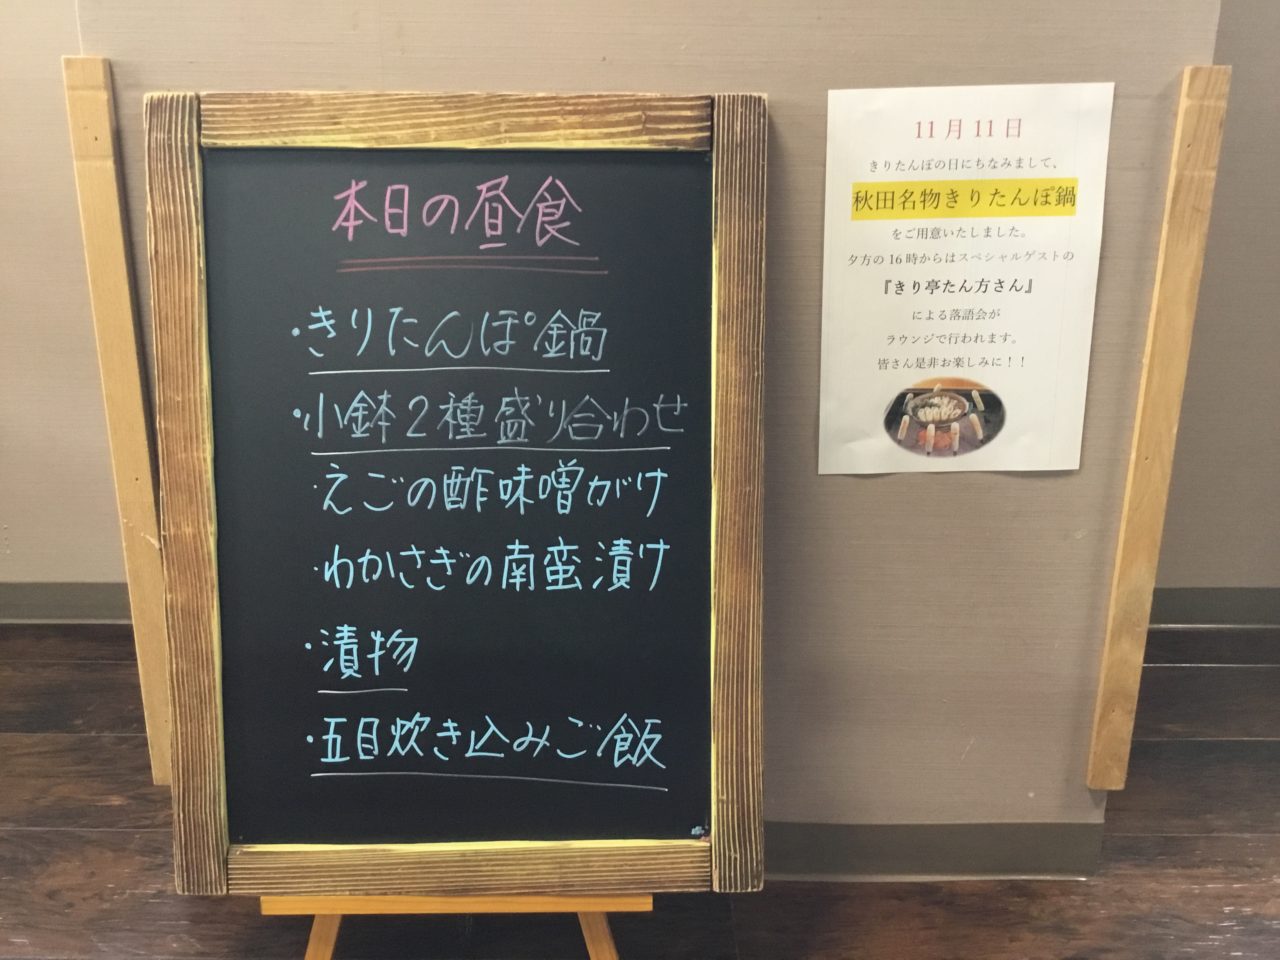 本日の昼食
・きりたんぽ鍋
・小鉢2種盛り合わせ
・えごの酢味噌がけ
・わかさぎの南蛮漬け
・漬物
・五目炊き込みご飯
11月11日
きりたんぽの日にちなみまして、
秋田名物きりたんぽ鍋
をご用意いたしました。
夕方の16時からはスペシャルゲストの
『きり亭たん方さん』
による落語会が
ラウンジで行われます。
皆さん是非お楽しみに！！